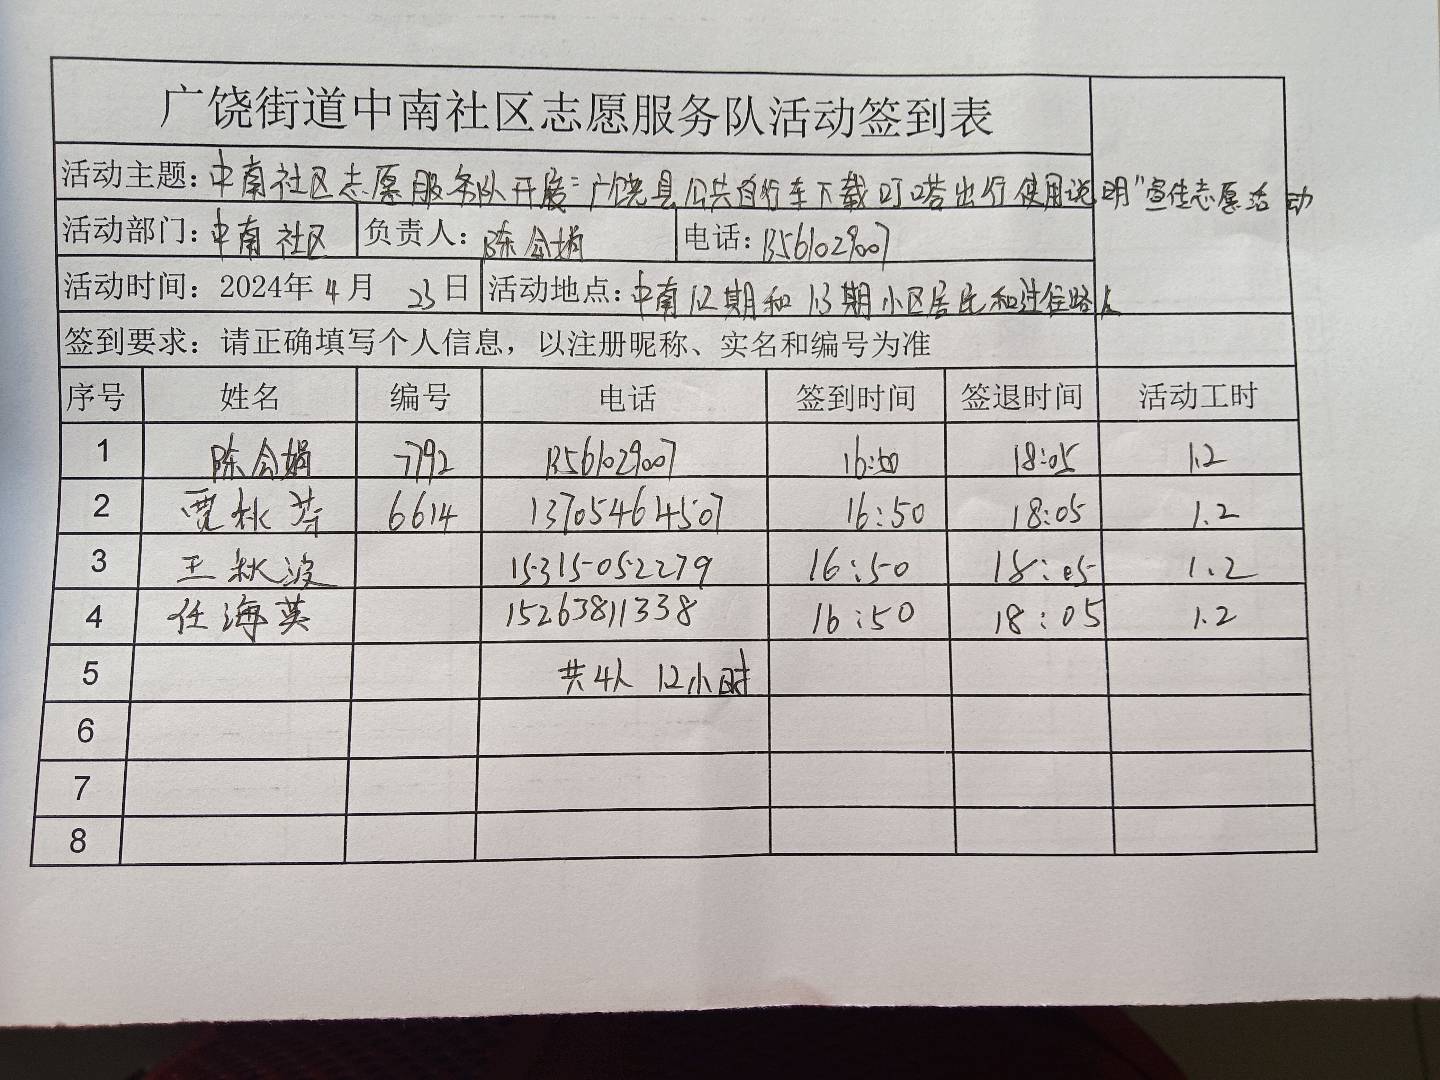 广饶街道中南社区志愿服务队活动签到表
活动主题：中南社区志愿服务队开展"广饶县公共自行车下载叮嗒出行使用说明"宣传志愿活动
活动部门：中南社区 负责人：陈会娟 电话：13561029007
活动时间：2024年4月23日 活动地点：中南12期和13期小区居民和过往路人
签到要求：请正确填写个人信息，以注册昵称、实名和编号为准
序号 姓名 编号 电话 签到时间 签退时间 活动工时
1 陈会娟 7792 13561029007 16:50 18:05 1.2
2 贾秋芳 6614 13705464507 16:50 18:05 1.2
3 王秋波 15315052279 16:50 18:05 1.2
4 任海英 15263811338 16:50 18:05 1.2
5 共4人 1.2小时
6
7
8